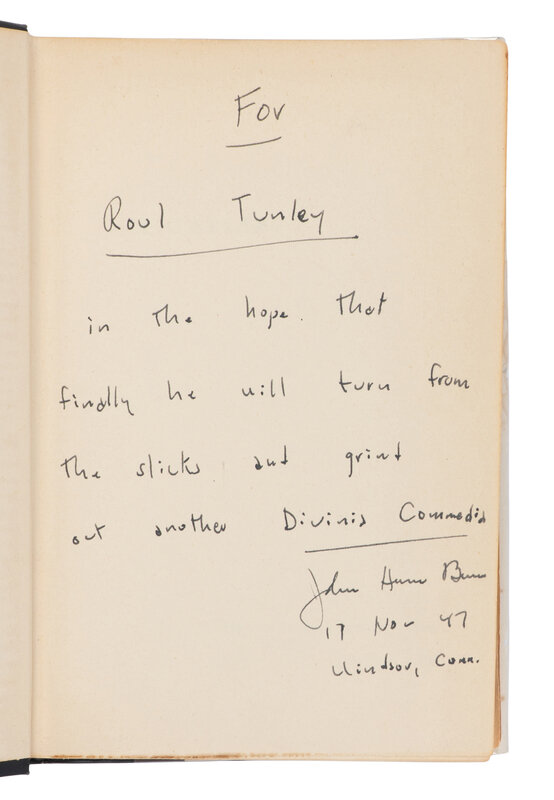 For
Roul Tunley
in the hope that
finally he will turn from
the slicks and grind
out another Divinia Commedia
John Horne Burns
17 Nov 47
Windsor, Conn.